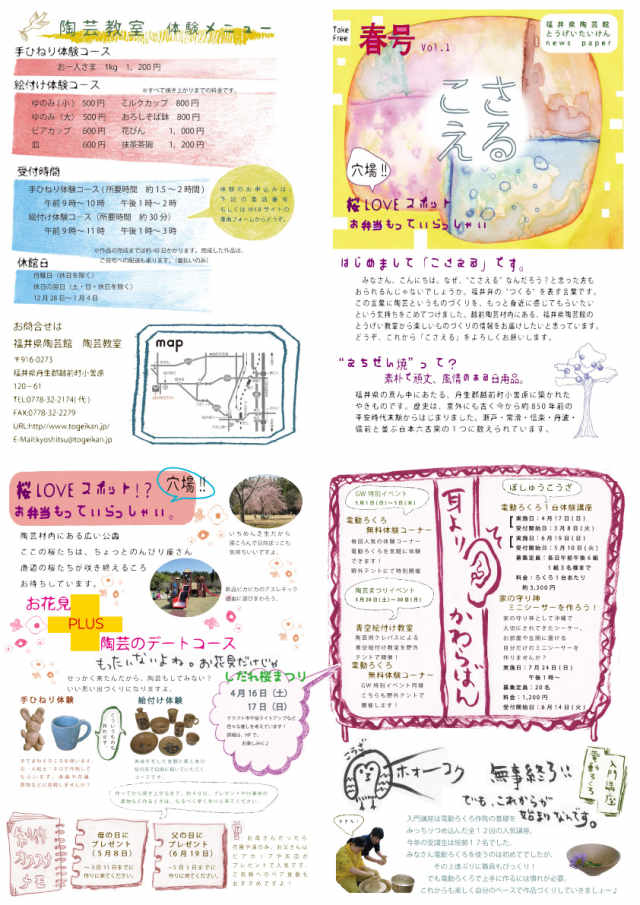 陶芸教室 体験メニュー
手ひねり体験コース
お一人さま 1kg 1,200円
絵付け体験コース
※すべて焼き上がりまでの料金です。
ゆのみ(小) 500円 ミルクカップ 800円
ゆのみ(大) 500円 おろしそば鉢 800円
ビアカップ 600円 花びん 1,000円
皿 600円 抹茶茶碗 1,200円
受付時間
手ひねり体験コース(所要時間 約1.5～2時間)
午前9時～10時 午後1時～2時
絵付け体験コース(所要時間 約30分)
午前9時～11時 午後1時～3時
体験のお申込みは
下記の電話番号
もしくはWEBサイトの
専用フォームからどうぞ。
休館日
月曜日(休日を除く)
休日の翌日(土・日・休日を除く)
12月28日～1月4日
お問合せは
福井県陶芸館 陶芸教室
〒916-0273
福井県丹生郡越前町小曽原
120－61
TEL:0778-32-2174(代)
FAX:0778-32-2279
URL:http://www.togeikan.jp/
E-Mail:kyoshitsu@togeikan.jp
map
Take
Free
春号
Vol.1
福井県陶芸館
とうげいたいけん
news paper
こさ
える
穴場!!
桜LOVEスポット
お弁当もっていらっしゃい
はじめまして「こさえる」です。
みなさん、こんにちは。なぜ、“こさえる”なんだろう?と思った方も
おられるんじゃないでしょうか。福井弁の“つくる”を表す言葉です。
この言葉に陶芸というものづくりを、もっと身近に感じてもらいたい
という気持ちをこめてつけました。越前陶芸村内にある、福井県陶芸館の
とうげい教室から楽しいものづくりの情報をお届けしたいと思っています。
どうぞ、これから「こさえる」をよろしくお願いします。
“えちぜん焼”って?
素朴で頑丈、風情のある日用品。
福井県の真ん中にあたる、丹生郡越前町小曽原に築かれた
やきものです。歴史は、意外にも古く今から約850年前の
平安時代末期からはじまりました。瀬戸・常滑・信楽・丹波・
備前と並ぶ日本六古窯の1つに数えられています。
桜LOVEスポット!?
穴場!!
お弁当もっていらっしゃい。
陶芸村内にある広い公園
ここの桜たちは、ちょっとのんびり屋さん
周辺の桜たちが咲き終えるころ
お待ちしています。
お花見
PLUS
陶芸のデートコース
もったいないよね。お花見だけじゃ
せっかく来たんだから、陶芸もしてみない?
いい思い出づくりになりますよ。
手ひねり体験
絵付け体験
しだれ桜まつり
4月16日(土)
17日(日)
母の日に
プレゼント
(5月8日)
父の日に
プレゼント
(6月19日)
耳よりかわらばん
GW特別イベント
電動ろくろ
無料体験コーナー
毎回人気の体験コーナー
電動ろくろを気軽に体験
できます!
野外テントにて特別開催
陶芸まつりイベント
青空絵付け教室
電動ろくろ
無料体験コーナー
ぼしゅうこうざ
電動ろくろ1日体験講座
実施日:4月17日(日)
受付開始日:3月8日(火)
実施日:6月19日(日)
受付開始日:5月10日(火)
1組3名様まで
料金:ろくろ1台あたり
約3,300円
家の守り神
ミニシーサーを作ろう!
実施日:7月24日(日)
午後1時～
募集定員:20名
料金:1,200円
受付開始日:6月14日(火)
ホォーコク
無事終了!!
でも、これからが
始まりなんです。
電動ろくろ
入門講座
入門講座は電動ろくろ作陶の基礎を
みっちりつめ込んだ全12回の人気講座。
今年の受講生は総勢17名でした。
みなさん電動ろくろを使うのは初めてでしたが、
その上達ぶりに職員もびっくり!
でも電動ろくろで上手に作るには慣れが必要、
これからも楽しく自分のペースで作品づくりしていきましょ～♪